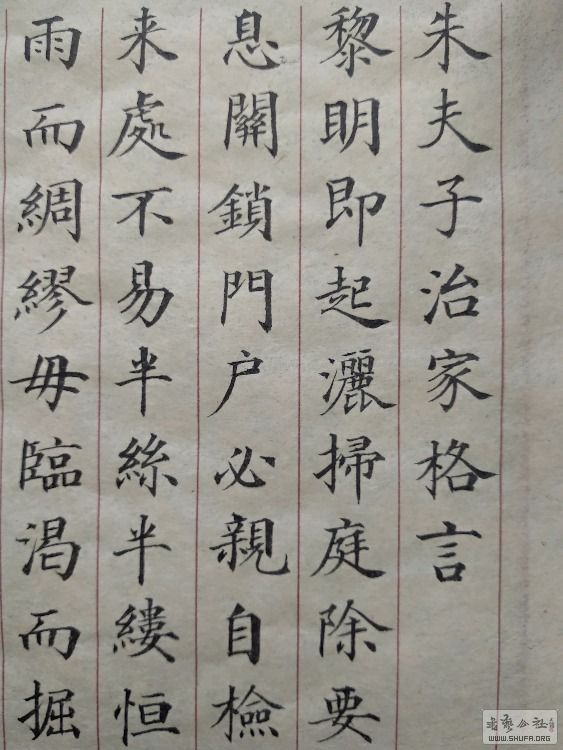 朱夫子治家格言
黎明即起灑掃庭除要
息關鎖門户必親自檢
来處不易半絲半縷恒
雨而綢繆毋臨渴而掘
WWW.SHUFA.ORG